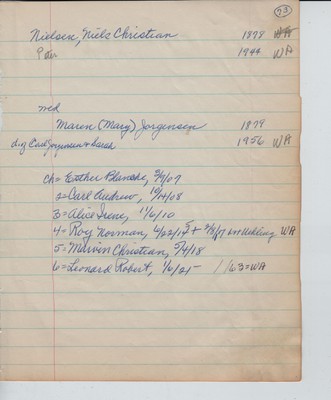 73
Nielsen, Niels Christian 1878 WA
Peter 1944 WA
md
Maren (Mary) Jorgensen 1879
d/o Carl Jorgensen & Sarah 1956 WA
ch= Esther Blanche, 3/9/07
2= Carl Andrew, 10/14/08
3= Alice Irene, 11/6/10
4= Roy Norman, Uehling WA
5= Marvin Christian, 5/4/18
6= Leonard Robert, 1/6/21- 1/63=WA